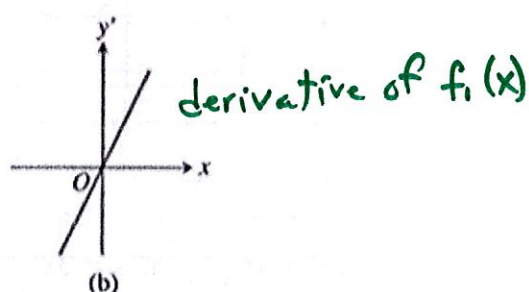 y'
derivative of f₁(x)
O
x
(b)